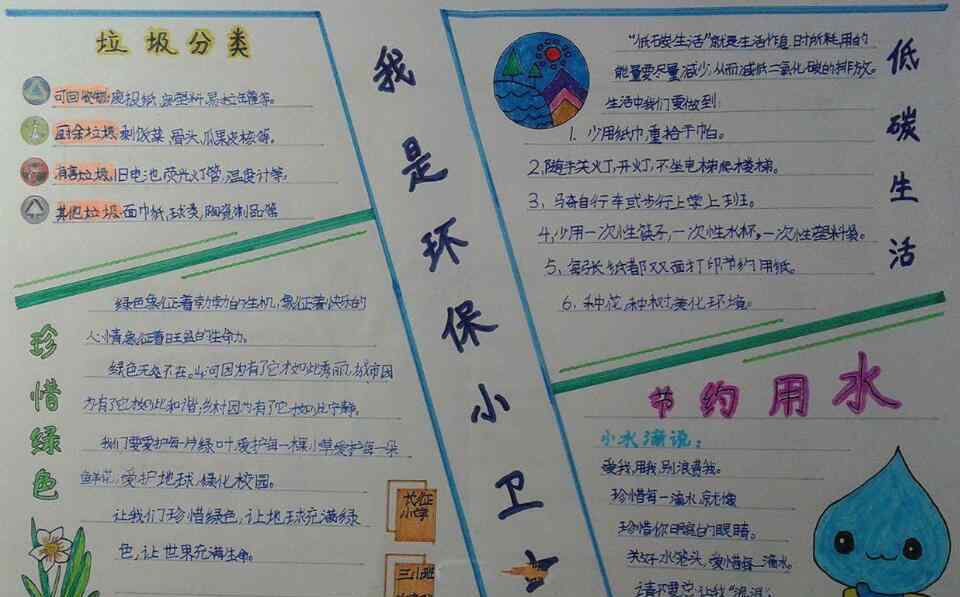 垃圾分类
可回收物:废报纸、废塑料、易拉罐等。
厨余垃圾:剩饭菜、骨头、瓜果皮核等。
有害垃圾:旧电池、荧光灯管、温度计等。
其他垃圾:面巾纸、球类、陶瓷制品等
珍惜绿色
绿色象征着勃勃的生机,象征着快乐的
心情,象征着旺盛的生命力。
绿色无处不在。山河因为有了它才如此秀丽,城市因
为有了它才如此和谐,乡村因为有了它才如此宁静。
我们要爱护每一片绿叶,爱护每一棵小草,爱护每一朵
鲜花,爱护地球,绿化校园。
让我们珍惜绿色,让地球充满绿
色,让世界充满生命。
长征
小学
三小班
我是环保小卫
低碳生活
“低碳生活”就是生活作息时所耗用的
能量要尽量减少,从而减低二氧化碳的排放。
生活中我们要做到:
1、少用纸巾,重拾手帕。
2、随手关灯、开灯,不坐电梯爬楼梯。
3、骑自行车或步行上学上班。
4、少用一次性筷子,一次性水杯,一次性塑料袋。
5、每张纸都双面打印节约用纸。
6、种花种树美化环境。
节约用水
小水滴说:
爱我,用我,别浪费我。
珍惜每一滴水,就像
珍惜你明亮的眼睛。
关好水龙头,爱惜每一滴水。